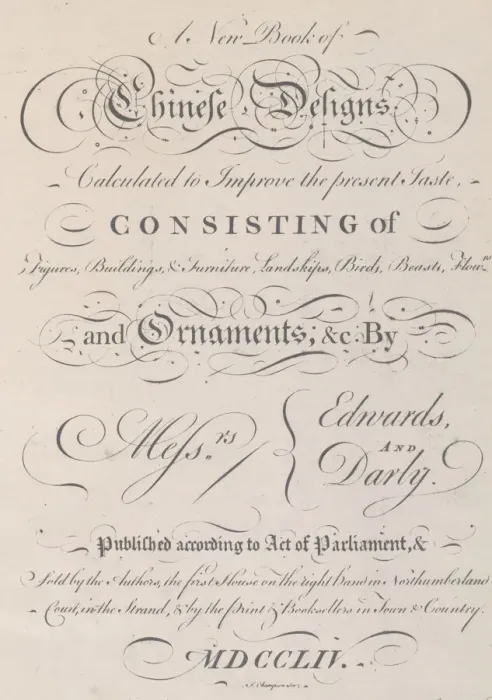 A New Book of
Chineſe Deſigns
Calculated to Improve the preſent Taste,
CONSISTING of
Figures, Buildings, & Furniture, Landskips, Birds, Beasts, Flowrs
and Ornaments, &c. By
Meſsrs
Edwards,
AND
Darly.
Publiſhed according to Act of Parliament, &
Sold by the Authors, the first House on the right Hand in Northumberland
Court, in the Strand, & by the Print & Bookſellers in Town & Country.
MDCCLIV.
Champion